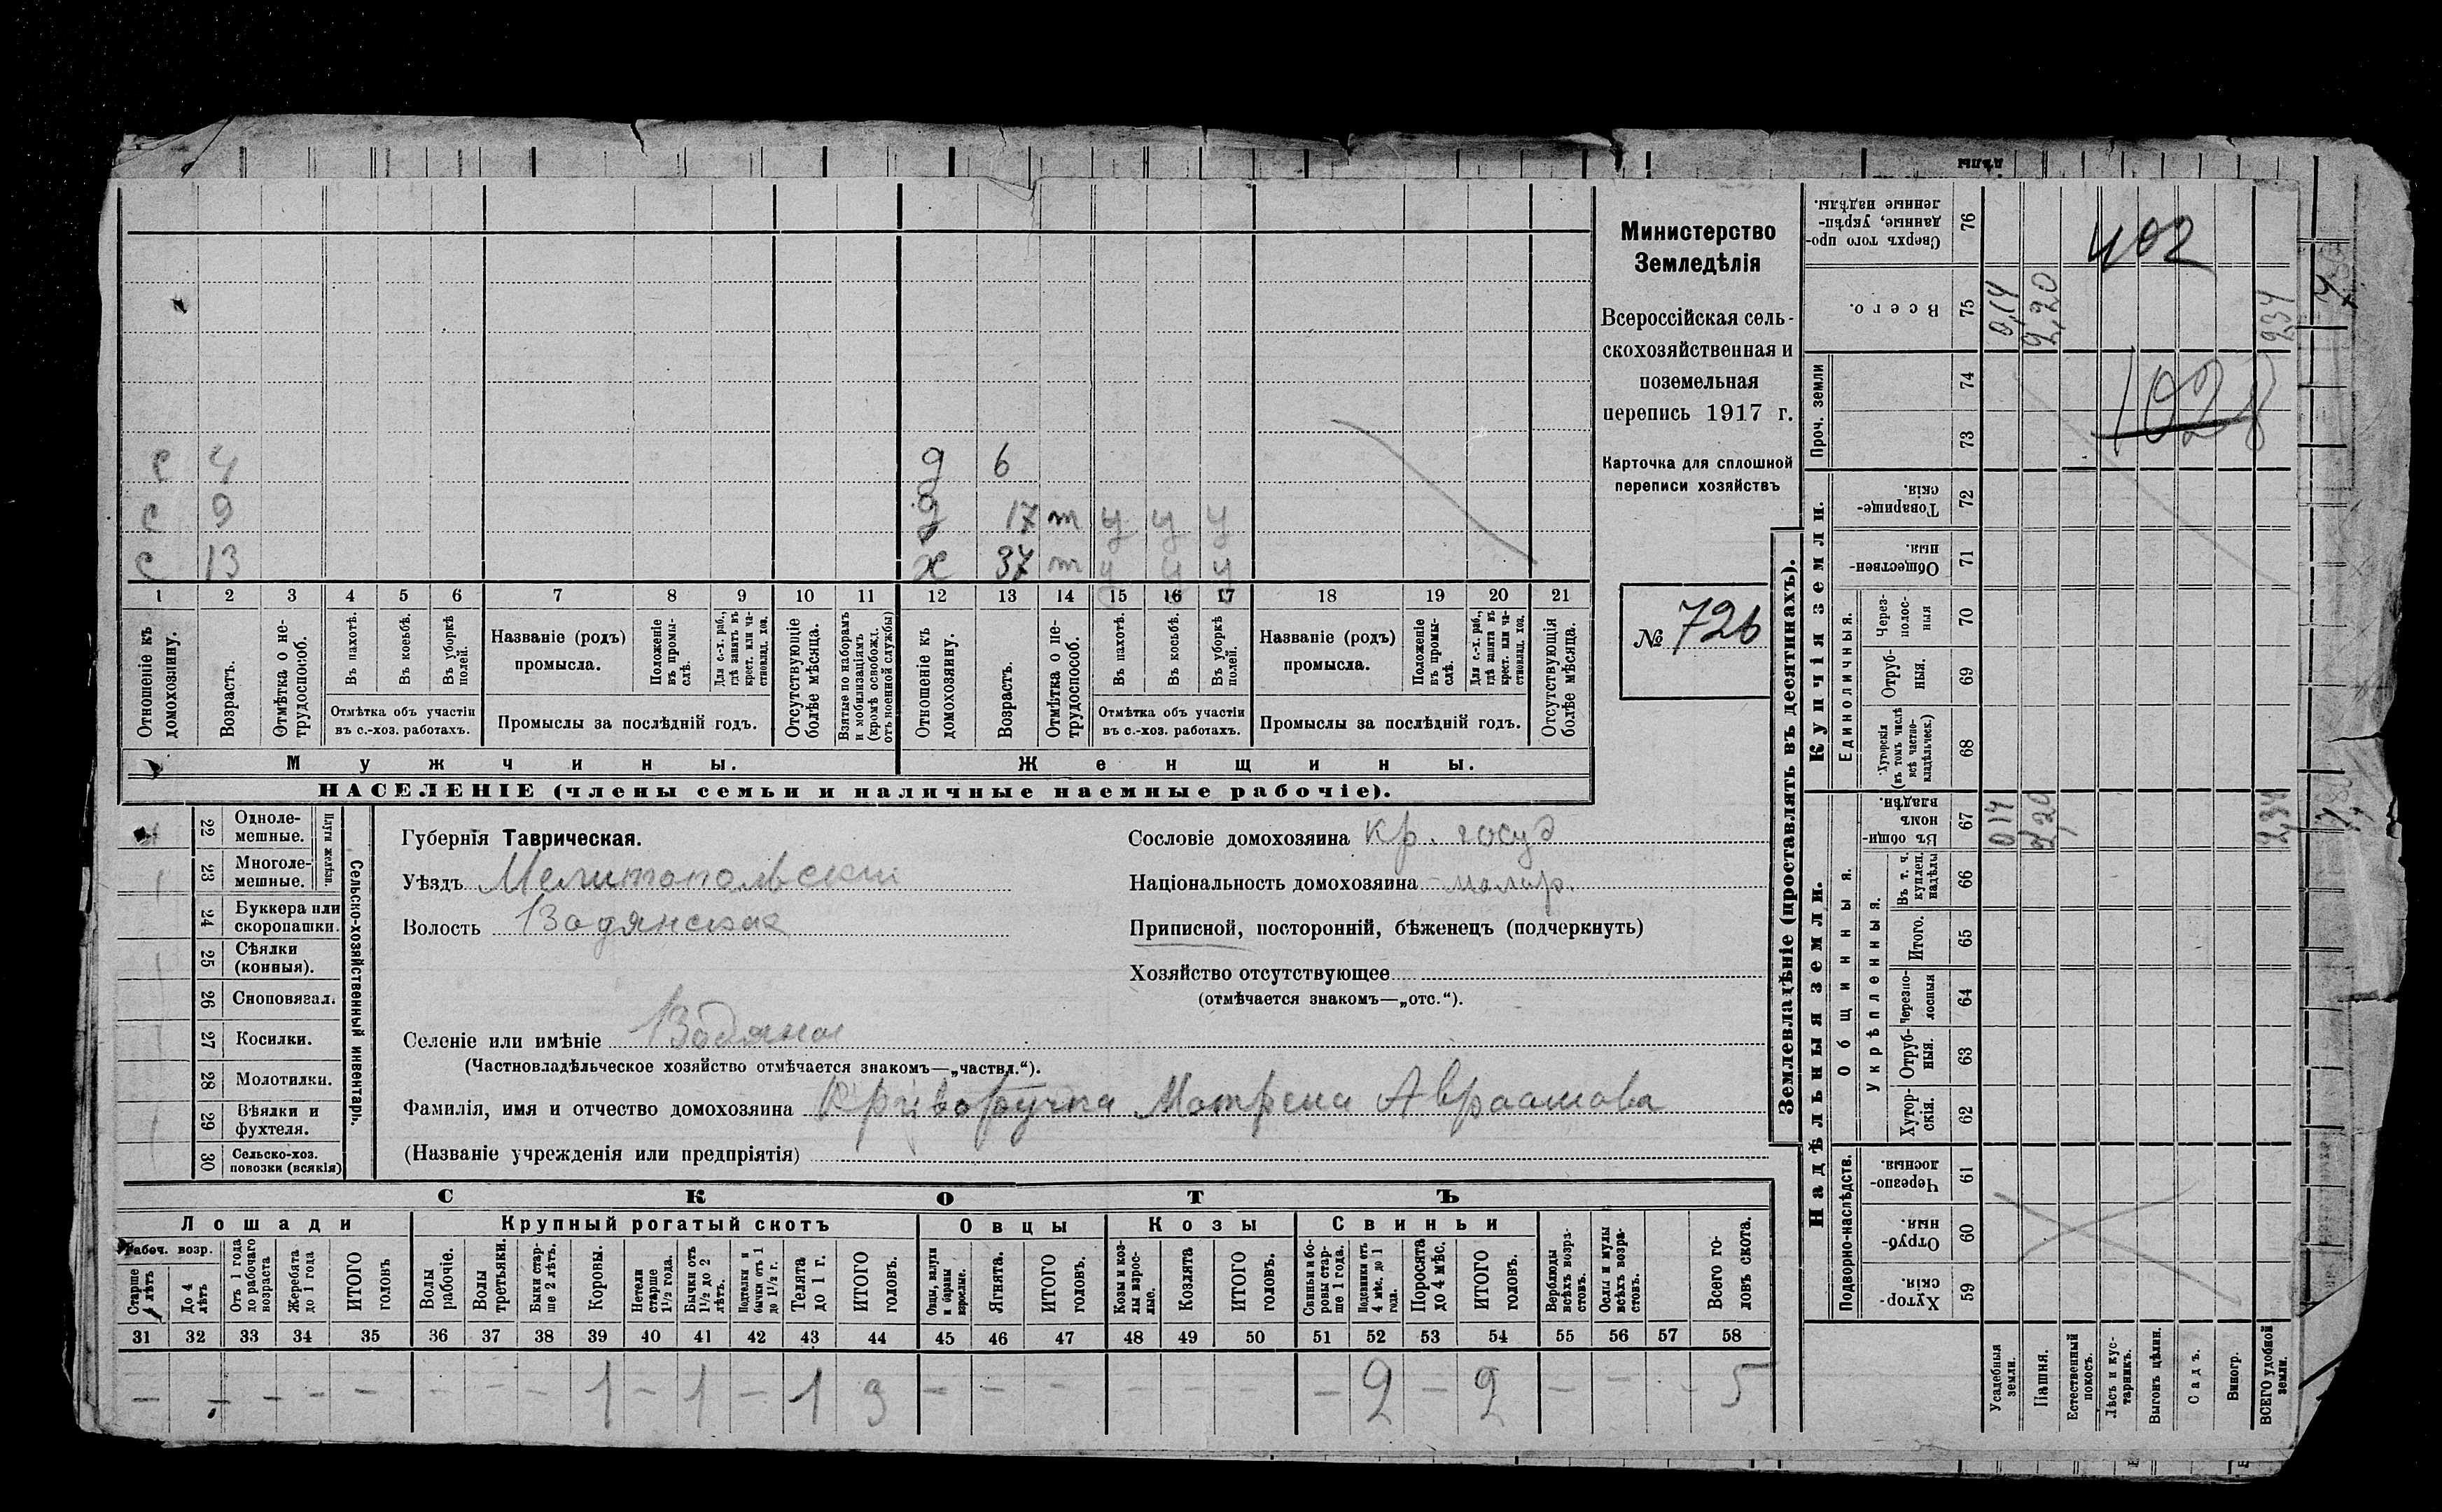 Министерство
Земледѣлія
Всероссійская сель-
скохозяйственная и
поземельная
перепись 1917 г.
Карточка для сплошной
переписи хозяйствъ
№ 726
с 4
с 9
с 13
д 6
д 17 т у у у
ж 37 т у у у
1 2 3 4 5 6 7 8 9 10 11 12 13 14 15 16 17 18 19 20 21
Отношеніе къ домохозяину.
Возрастъ.
Отмѣтка о не-трудоспособ.
Въ пахотѣ.
Въ косьбѣ.
Въ уборкѣ полей.
Отмѣтка объ участіи
въ с.-хоз. работахъ.
Названіе (родъ)
промысла.
Положеніе въ промы-слѣ.
Для с.-х. раб., гдѣ занятъ въ крест. или ча-стновлад. хоз.
Промыслы за послѣдній годъ.
Отсутствующіе болѣе мѣсяца.
Взятые по наборамъ и мобилизаціямъ (кромѣ освобожд. отъ военной службы)
Отношеніе къ домохозяину.
Возрастъ.
Отмѣтка о не-трудоспособ.
Въ пахотѣ.
Въ косьбѣ.
Въ уборкѣ полей.
Отмѣтка объ участіи
въ с.-хоз. работахъ.
Названіе (родъ)
промысла.
Положеніе въ промы-слѣ.
Для с.-х. раб., гдѣ занята въ крест. или ча-стновлад. хоз.
Промыслы за послѣдній годъ.
Отсутствующія болѣе мѣсяца.
Мужчины.
Женщины.
НАСЕЛЕНІЕ (члены семьи и наличные наемные рабочіе).
22 Одноле-
мешные.
23 Многоле-
мешные.
Плуги желѣзн.
24 Буккера или
скоропашки.
25 Сѣялки
(конныя).
26 Сноповязал.
27 Косилки.
28 Молотилки.
29 Вѣялки и
фухтеля.
30 Сельско-хоз.
повозки (всякія)
Сельско-хозяйственный инвентарь.
Губернія Таврическая.
Уѣздъ Мелитопольскій
Волость Водянская
Селеніе или имѣніе Водяная
(Частновладѣльческое хозяйство отмѣчается знакомъ—„частвл.“).
Фамилія, имя и отчество домохозяина Криворучка Мотрена Авраамова
(Названіе учрежденія или предпріятія)
Сословіе домохозяина кр. госуд
Національность домохозяина малор.
Приписной, посторонній, бѣженецъ (подчеркнуть)
Хозяйство отсутствующее
(отмѣчается знакомъ—„отс.“).
СКОТЪ
Лошади
Крупный рогатый скотъ
Овцы
Козы
Свиньи
Рабоч. возр.
Старше 4 лѣтъ
До 4 лѣтъ
Отъ 1 года до рабочаго возраста
Жеребята до 1 года
ИТОГО головъ
Волы рабочіе.
Волы третьяки.
Быки стар-ше 2 лѣтъ.
Коровы.
Нетели старше 1½ года.
Бычки отъ 1½ до 2 лѣтъ.
Подтелки и бычки отъ 1 до 1½ г.
Телята до 1 г.
ИТОГО головъ.
Овцы, валухи и бараны взрослые.
Ягнята.
ИТОГО головъ.
Козы и коз-лы взрос-лые.
Козлята
ИТОГО головъ.
Свиньи и бо-ровы стар-ше 1 года.
Подсвинки отъ 4 мѣс. до 1 года.
Поросята до 4 мѣс.
ИТОГО головъ.
Верблюды всѣхъ возра-стовъ.
Ослы и мулы всѣхъ возра-стовъ.
Всего го-ловъ скота.
31 32 33 34 35 36 37 38 39 40 41 42 43 44 45 46 47 48 49 50 51 52 53 54 55 56 57 58
— — — — — — — — 1 — 1 — 1 3 — — — — — — — 2 — 2 — — — 5
Землевладѣніе (проставлять въ десятинахъ).
Надѣльныя земли.
Купчія земли.
Проч. земли
Подворно-наслѣдств.
Общинныя.
Укрѣпленныя.
Единоличныя.
Хутор-скія. 59
Отруб-ныя. 60
Черезпо-лосныя. 61
Хутор-скія. 62
Отруб-ныя. 63
Черезпо-лосныя 64
Итого. 65
Въ т. ч. куплен. надѣлы 66
Въ общин-номъ владѣн. 67
Хуторскія (въ томъ числѣ всѣ частно-владѣльческ.) 68
Отруб-ныя. 69
Через-полос-ныя 70
Обществен-ныя. 71
Товарище-скія. 72
73
74
Всего. 75
Сверхъ того про-данные, укрѣп-ленные надѣлы. 76
Усадебныя земли.
Пашня.
Естественный покосъ.
Лѣсъ и кус-тарникъ.
Выгонъ цѣлин.
Садъ.
Виногр.
ВСЕГО удобной земли.
0,14 2,20 2,34
0,14 2,20 2,34
402
1028